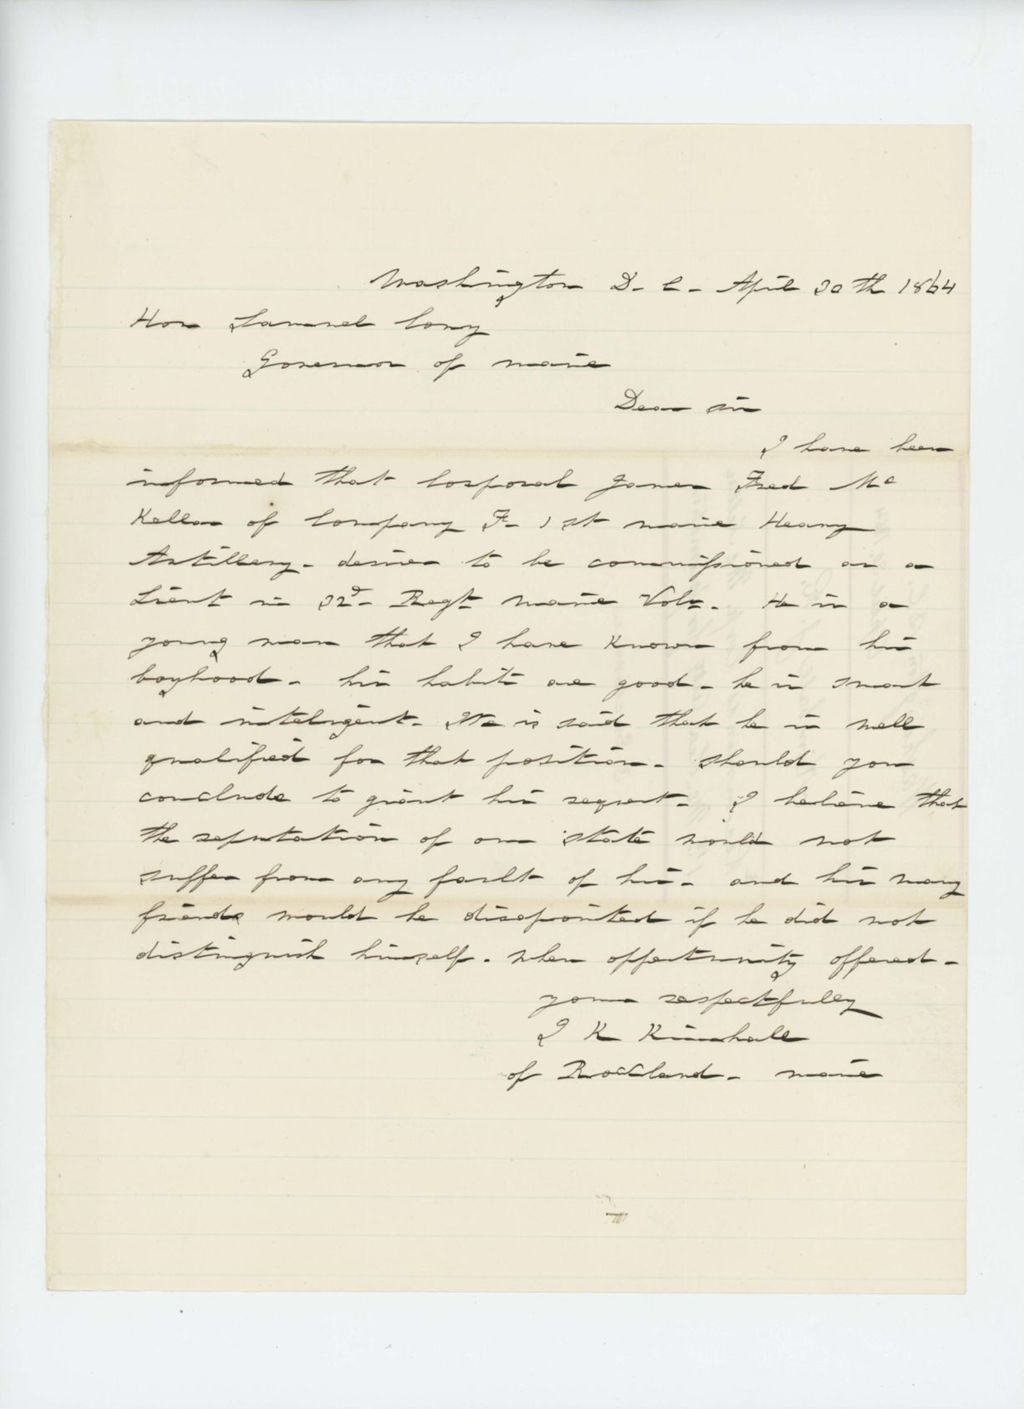 Washington D. C. April 20th 1864
Hon Samuel Cony
Governor of Maine
Dear sir
I have been
informed that Corporal James Fred Mc
Kellar of Company F. 1st Maine Heavy
Artillery. desires to be commissioned as a
Lieut in 32d. Regt Maine Vols. He is a
young man that I have known from his
boyhood. his habits are good. he is smart
and intelegent. It is said that he is well
qualified for that position. Should you
conclude to grant his request. I believe that
the reputation of our state would not
suffer from any fault of his. and his many
friends would be disapointed if he did not
distinguish himself. when oppertunity offered.
yours respectfully
I K Kimball
of Rockland. Maine